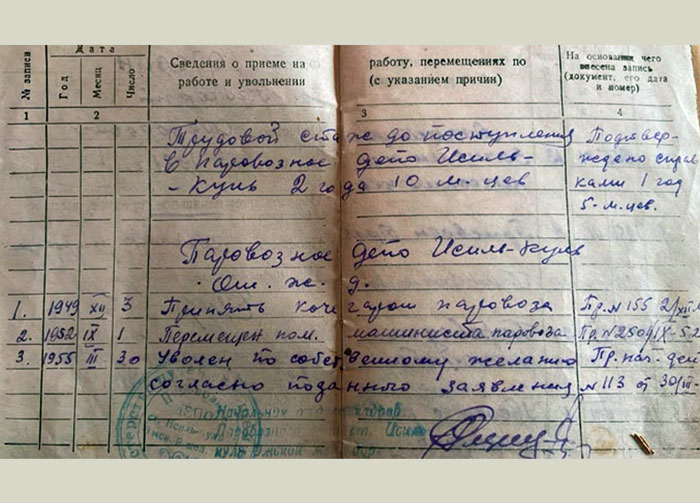 № записи
Дата
Год
Месяц
Число
Сведения о приеме на работу, перемещениях по
работе и увольнении (с указанием причин)
На основании чего
внесена запись
(документ, его дата
и номер)
1 2 3 4
Трудовой стаж до поступления Подтвер-
в паровозное депо Исиль- ждено справ
-Куль 2 года 10 м.цев ками 1 год
5-м.цев.
Паровозное депо Исиль-Куль
Ом. ж. д.
1. 1949 XII 3 Принять кочегаром паровоза Пр. № 155 2/XII
2. 1952 IX 1 Перемещен пом. машиниста паровоза Пр. № 250
3. 1955 III 30 Уволен по собственному желанию Пр. нач. деп
согласно поданного заявления № 113 от 30/III
Начальник кадров
Паровозн ст. Исиль
куль Омской жел. дор.